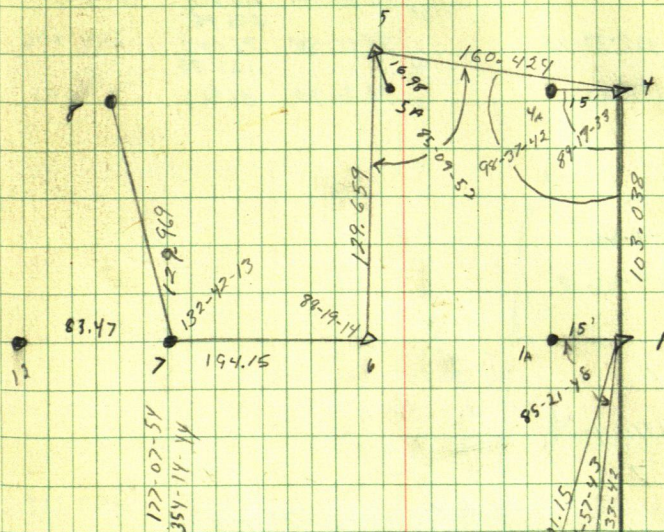 5
160.424
16.98
5A
4A
15'
4
8
85-09-52
98-37-42
89-19-33
129.659
103.038
129.969
132-42-13
88-19-14
83.47
12
7
194.15
6
1A
15'
1
85-21-48
177-07-54
354-14-44
1.15
-57-43
33-42